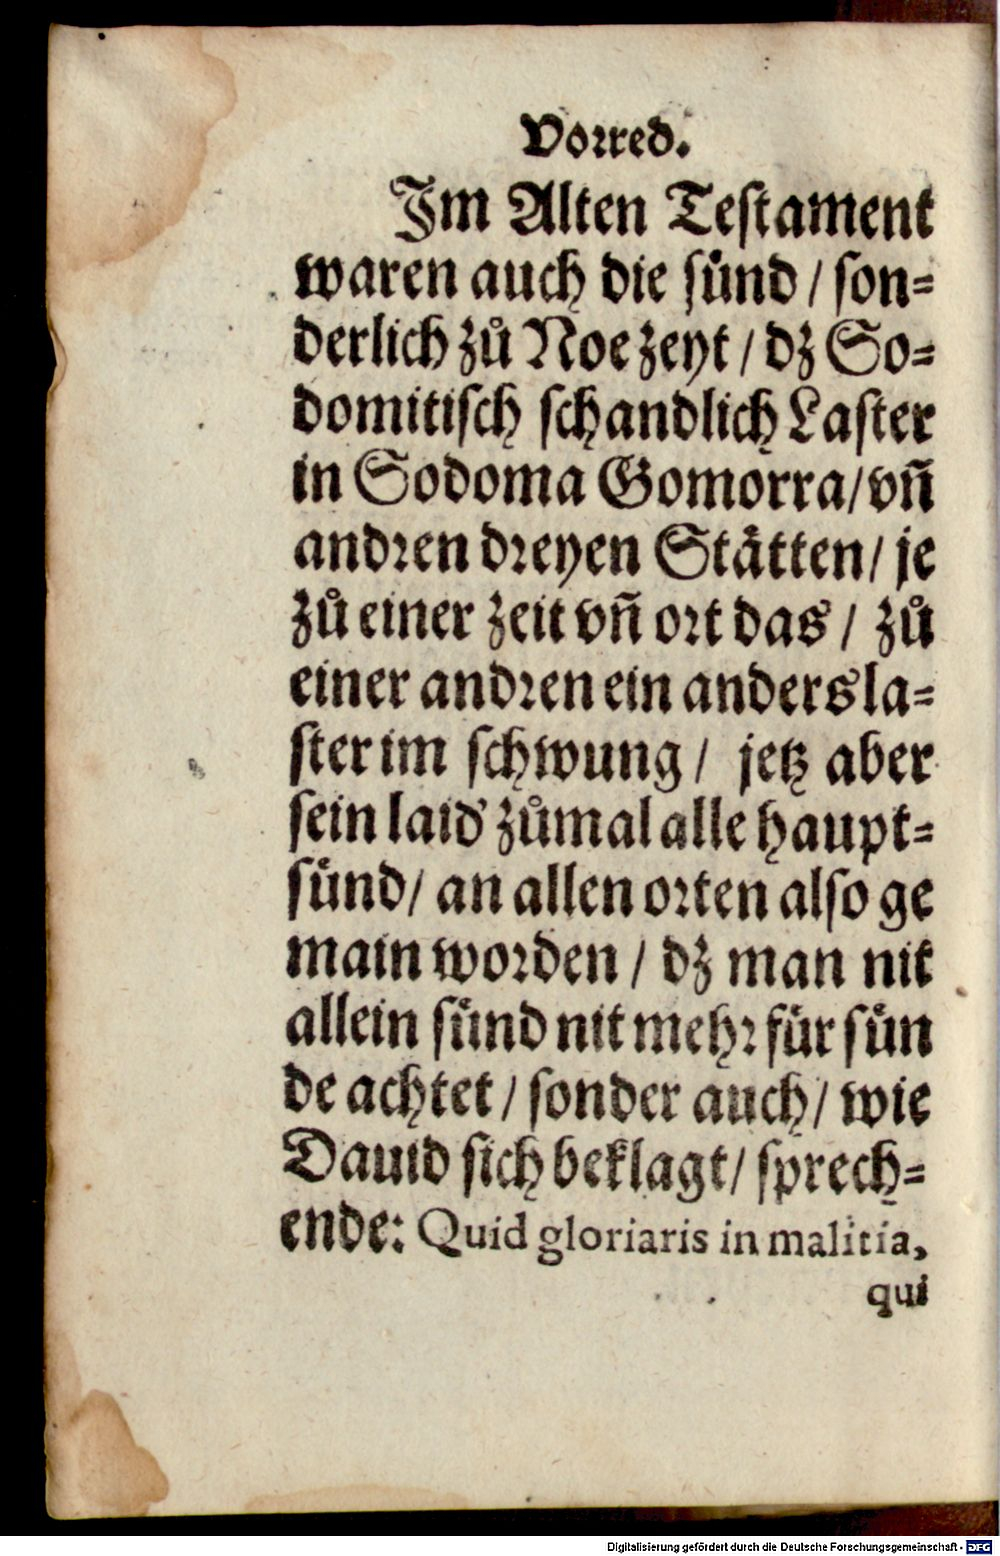 Vorred.
Im Alten Testament
waren auch die sünd / son⸗
derlich zů Noe zeyt / dz So⸗
domitisch schandlich Laster
in Sodoma Gomorra / vn̄
andren dreyen Stätten / je
zů einer zeit vn̄ ort das / zů
einer andren ein anders la⸗
ster im schwung / jetz aber
sein laid zůmal alle haupt⸗
sünd / an allen orten also ge
main worden / dz man nit
allein sünd nit mehr für sün
de achtet / sonder auch / wie
Dauid sich beklagt / sprech⸗
ende: Quid gloriaris in malitia,
qui
Digitalisierung gefördert durch die Deutsche Forschungsgemeinschaft - DFG